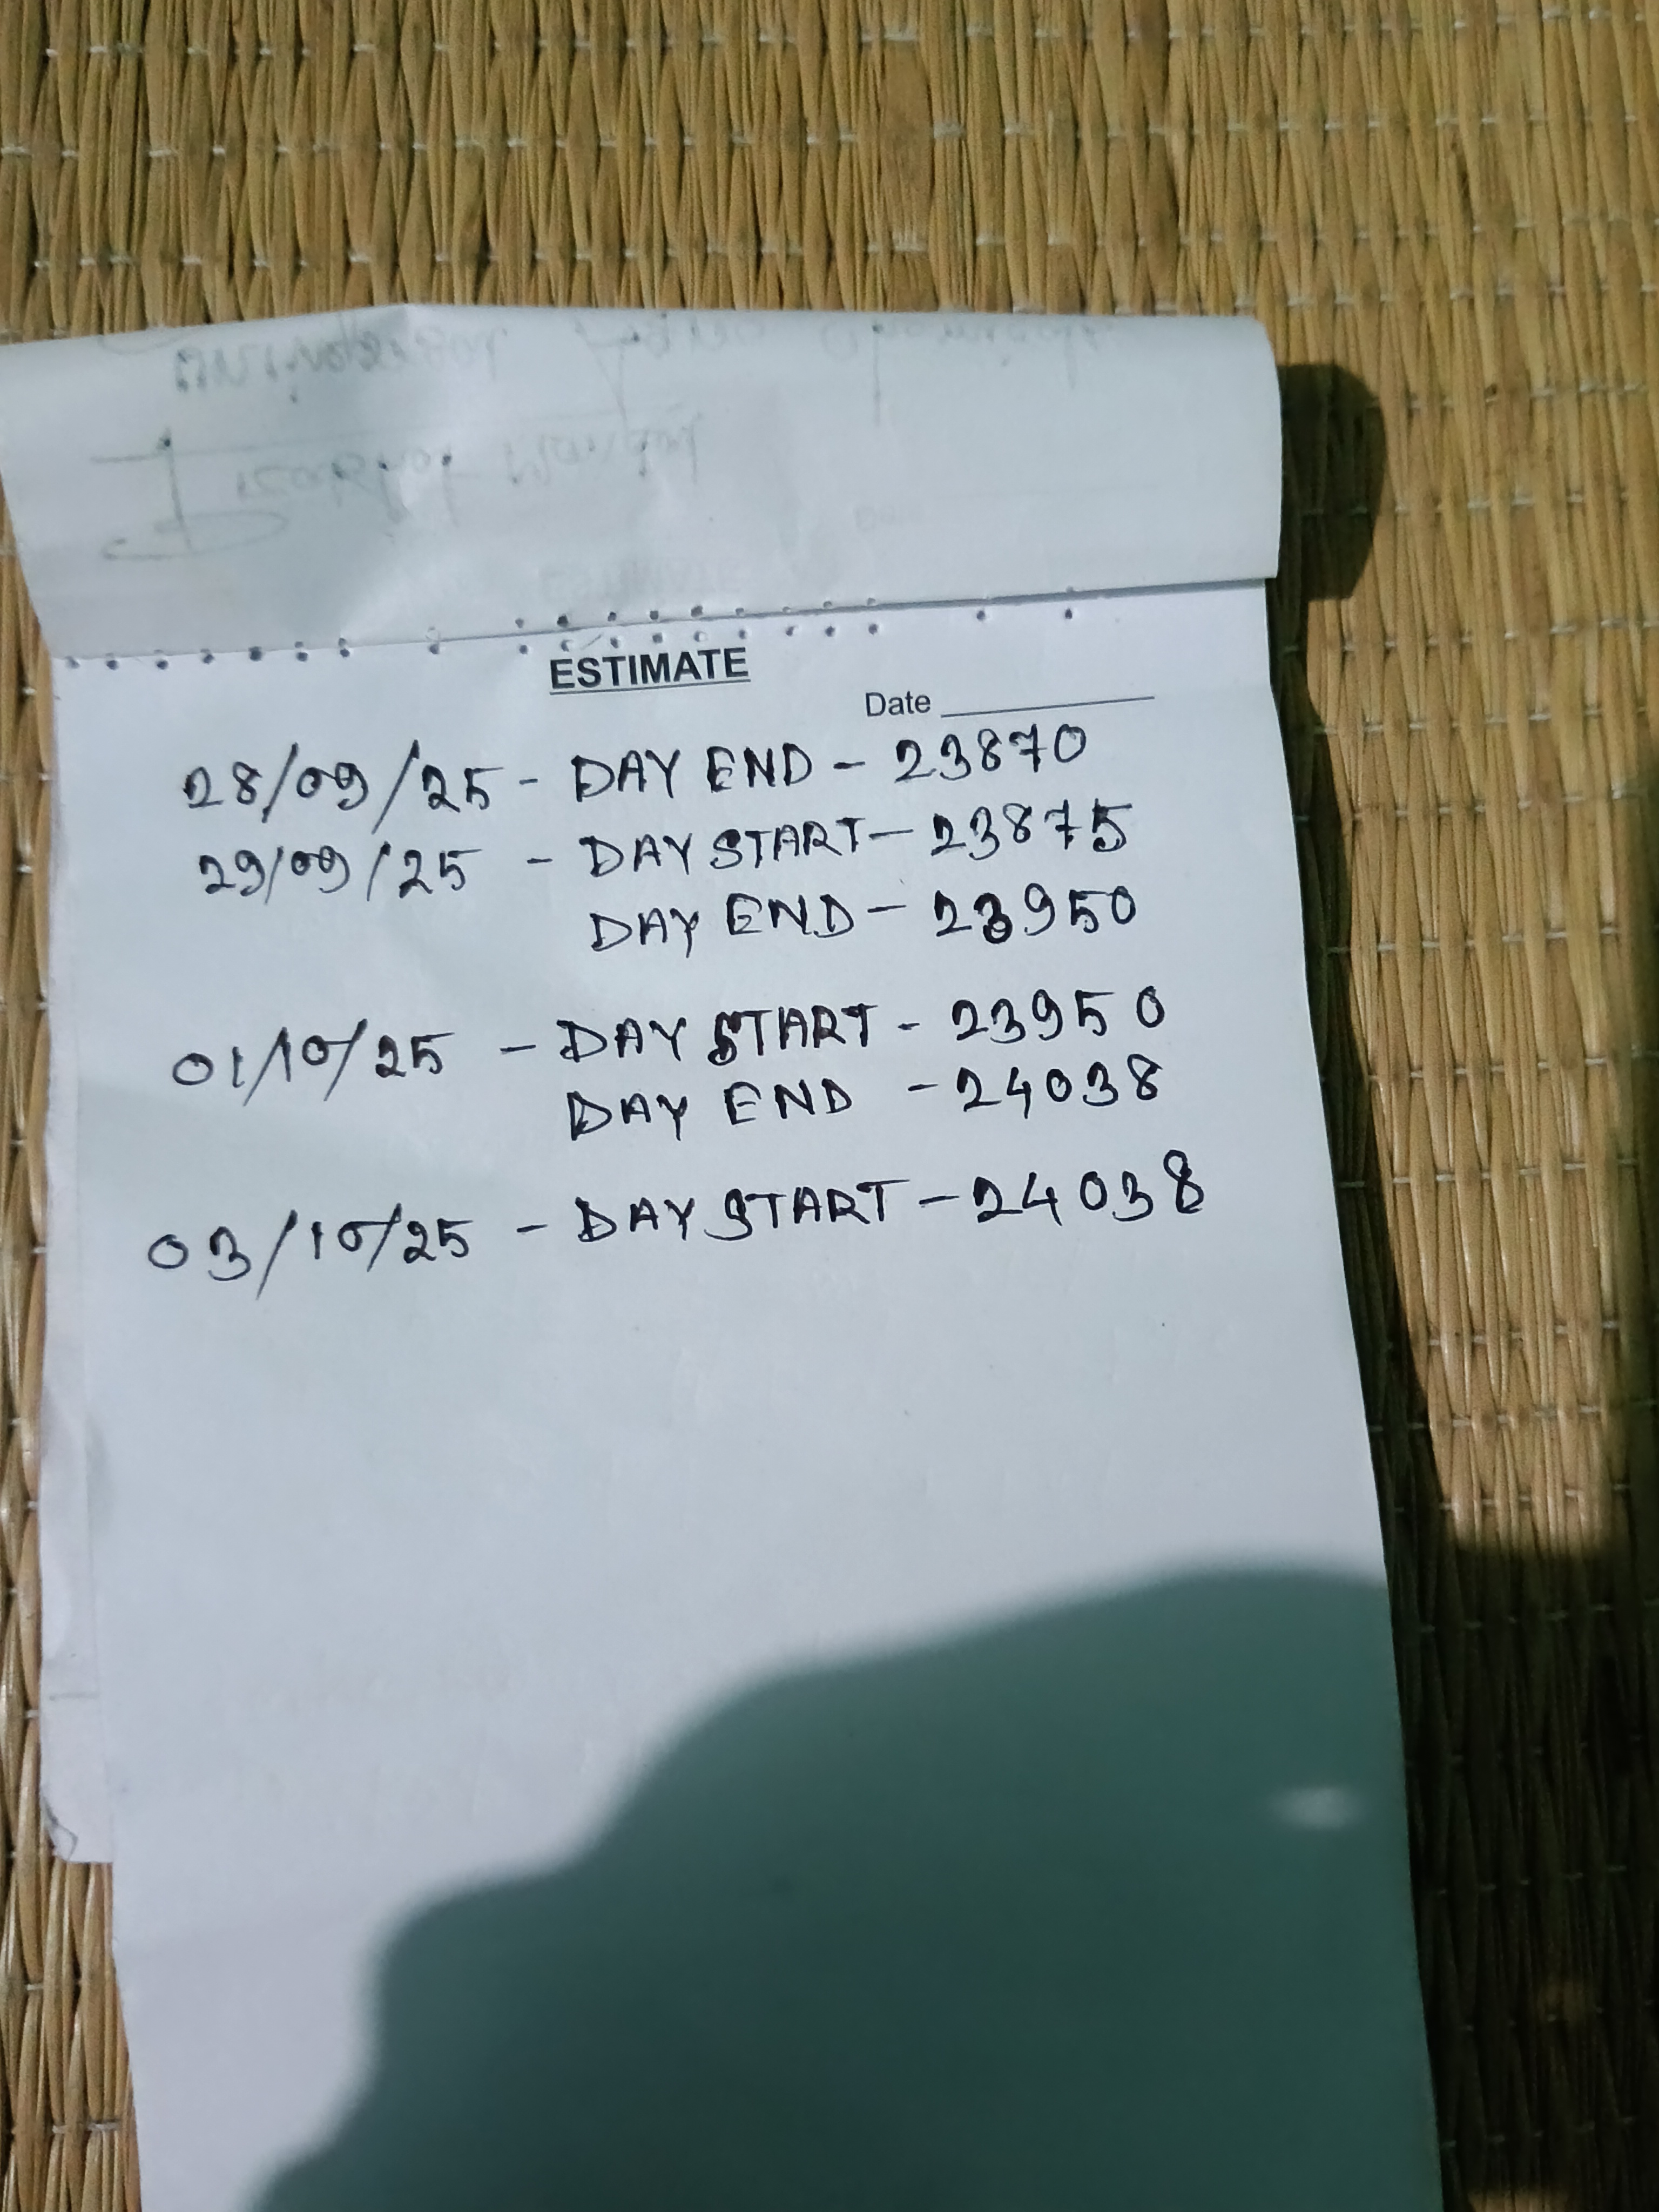 ESTIMATE
Date
28/09/25 - DAY END - 23870
29/09/25 - DAY START - 23875
DAY END - 23950
01/10/25 - DAY START - 23950
DAY END - 24038
03/10/25 - DAY START - 24038